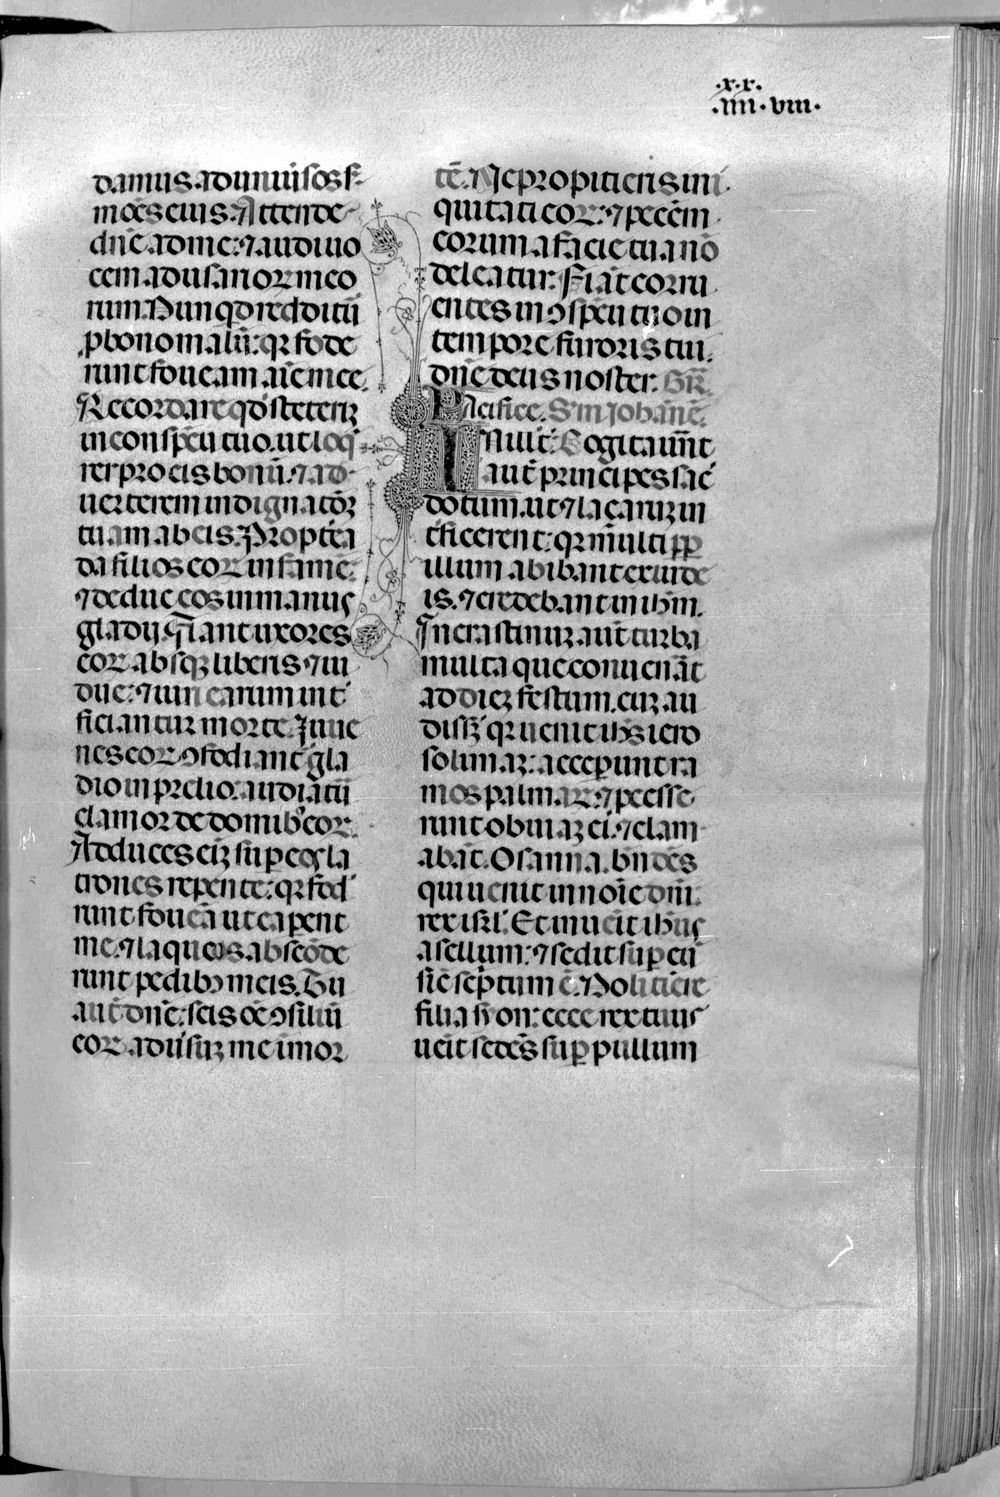 .x.x.
.iiii.viii.
damus. ad uniuersos s̄
mōes eius. Attende
dn̄e ad me: ⁊ audi uo
cem aduersariorum meo
rum. Nunqͥd reddit̄
ꝓ bono malū: qꝛ fode
runt foueam aīe mee.
Recordare qͩ steteriꝫ
in conspc̄u tuo. ut loqͥ
rer pro eis bonū. ⁊ ad
uerterem indignacōꝫ
tuam ab eis. Propt̄ea
da filios eoꝝ in famē:
⁊ deduc eos in manus
gladij. Fiant uxores
eoꝝ absqꝫ liberis ⁊ ui
due: ⁊ uiri earum int̄
ficiantur morte. Juue
nes eoꝝ ꝯfodiant̄ gla
dio in prelio. audiat̄
clamor de domibꝰ eoꝝ.
Adduces eiꝫ suꝑ eos la
trones repente: qꝛ fod̄
runt foueā ut caꝑent
me. ⁊ laqueos abscōde
runt pedibꝫ meis. Tu
aut̄ dn̄e: scis om̄e ꝯsiliū
eoꝝ aduersuꝫ me ī mor
tē. Ne propitieris ini
quitati eoꝝ: ⁊ pecc̄m
eorum a facie tua nō
deleatur. Fiāt corru
entes in ꝯspc̄u tuo in
tempore furoris tui.
dn̄e deus noster.
Pacifice. S'm johan̄ē.
In illo t̄: Cogitauer̄nt
aut̄ principes sac̄
dotum. ut ⁊ lazaruꝫ in
t̄ficerent: qꝛ multi ꝓpt̄
illum abibant ex iude
is. ⁊ credebant in ih̄m.
In crastinuꝫ aut̄ turba
multa que conuenāt
ad dieꝫ festum. cuꝫ au
dissꝫ qꝛ uenit ih̄s iero
solimaꝫ: acceꝑunt ra
mos palmaꝝ: ⁊ ꝓcesse
runt obuiaꝫ ei. ⁊ clam
abāt. Osanna. bn̄dc̄s
qui uenit in noīe dn̄i:
rex isr̄l. Et inuēit ih̄us
asellum: ⁊ sedit suꝑ eū
sic̄ scͥptum ē. Noli tim̄e
filia syon: ecce rex tuus
uēit sedēs suꝑ pullum